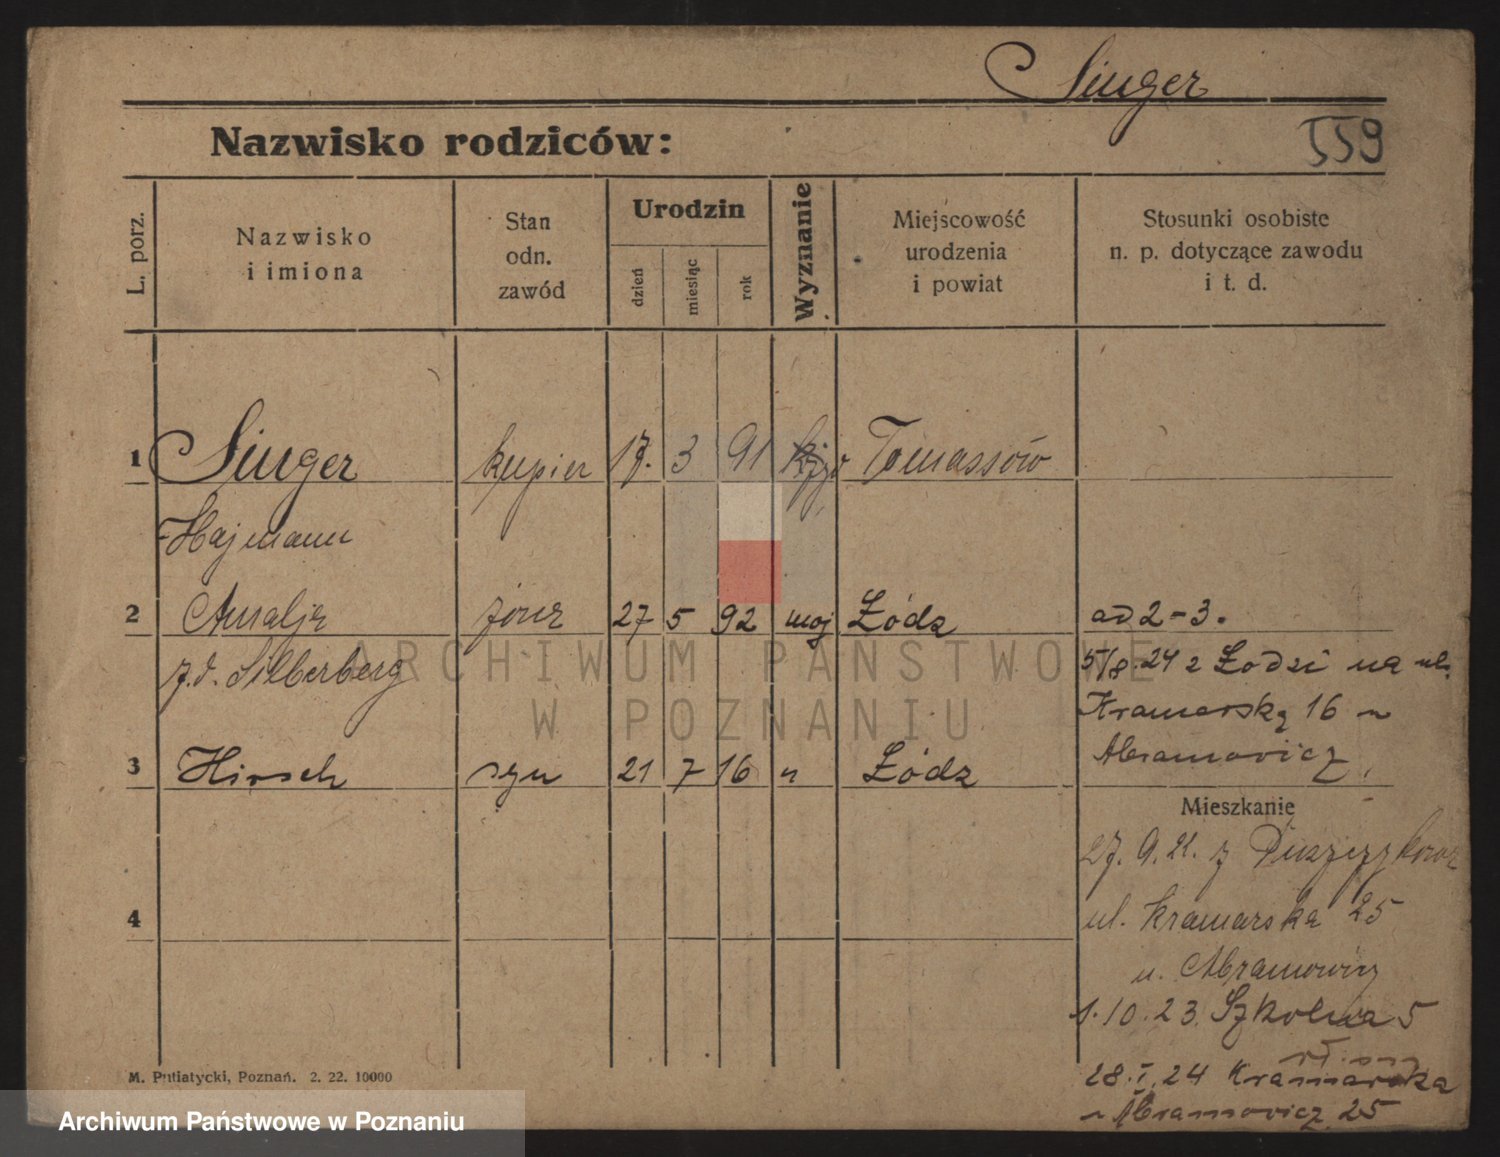 Singer
Nazwisko rodziców:
559
L. porz.
Nazwisko
i imiona
Stan
odn.
zawód
Urodzin
dzień
miesiąc
rok
Wyznanie
Miejscowość
urodzenia
i powiat
Stosunki osobiste
n. p. dotyczące zawodu
i t. d.
1 Singer kupiec 17. 3 91 Tomassów
Hajmann
2 Amalja żona 27 5 92 moj Łódz ad 2-3.
z.d. Silberberg 5/8.24 z Łodzi na ul.
Kramarską 16 u
3 Hirsch syn 21 7 16 " Łódz Abramowicz,
Mieszkanie
27. 9. 21. z Puszczykowa
4 ul. Kramarska 25
u. Abramowicz
1.10.23. Szkolna 5
28.I.24 Kramarska
u Abramowicz 25
M. Putiatycki, Poznań. 2. 22. 10000
ARCHIWUM PAŃSTWOWE
W POZNANIU
Archiwum Państwowe w Poznaniu